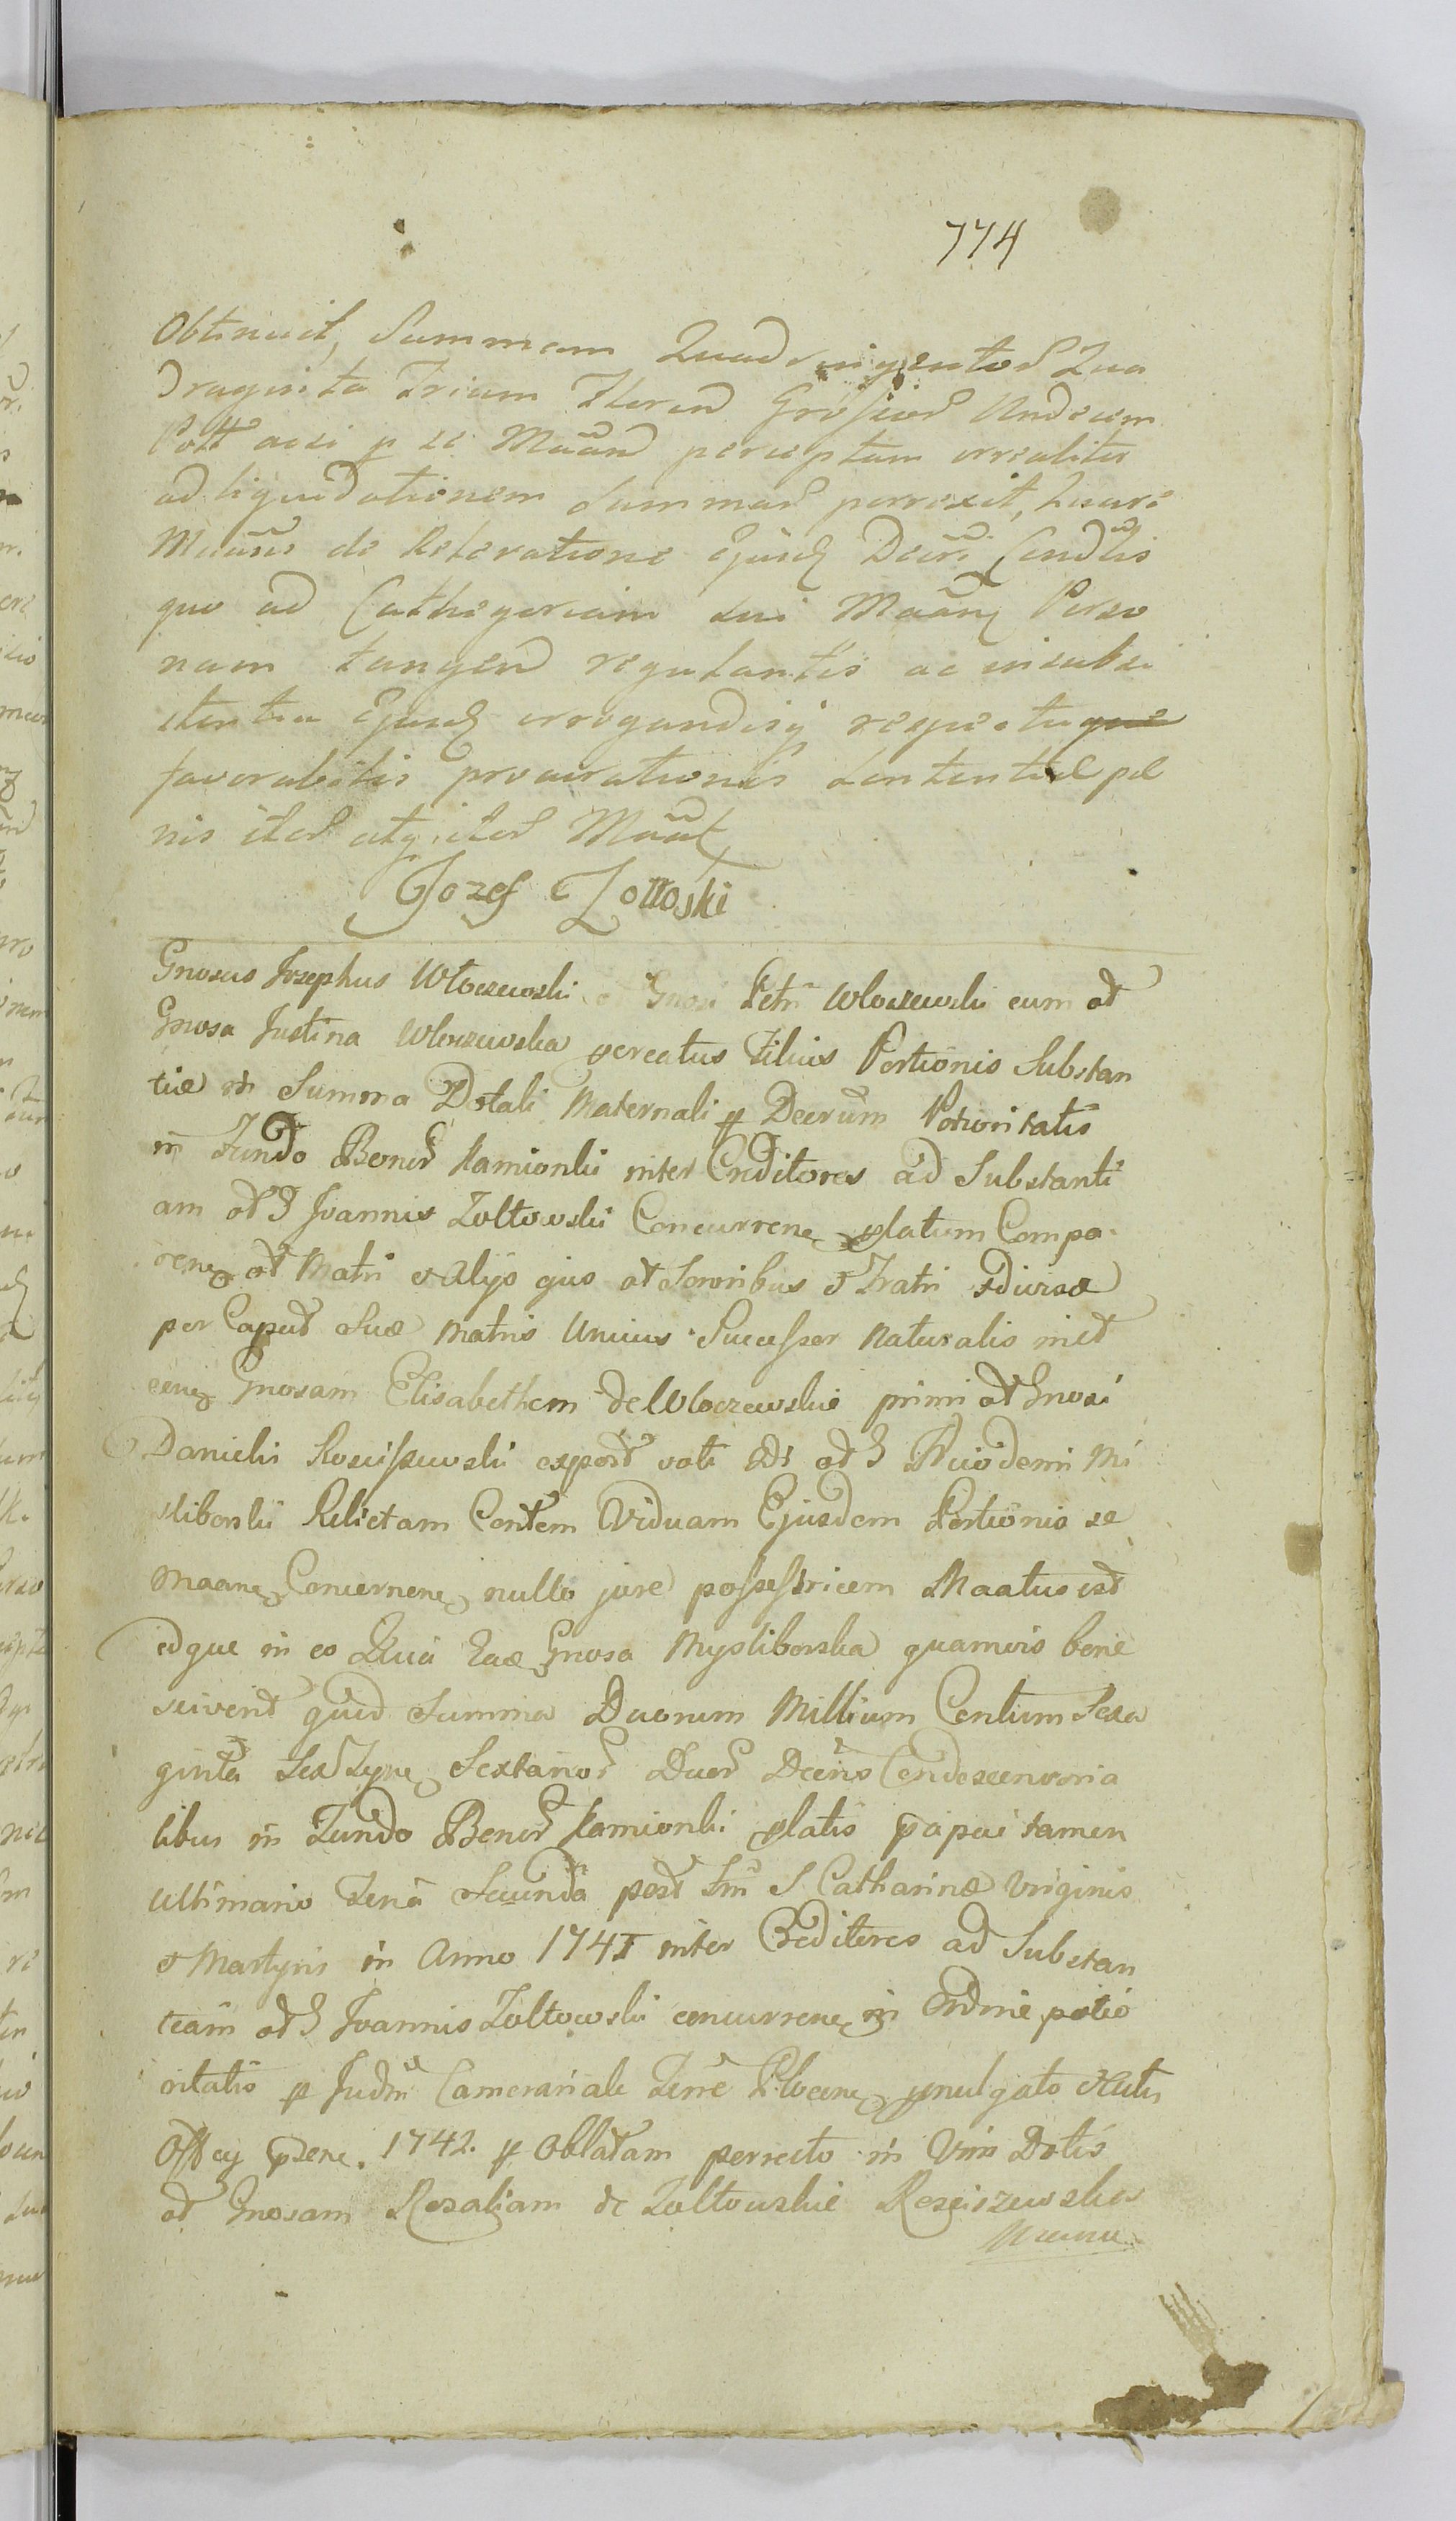 774
Obtinuit, Summam Quadringentor Qua
draginta Trium Floren Grossior Undecim
Poll acsi p se Maan perceptam irrealiter
ad liquidationem Summar porrexit, Luare
Maans de Relevatione Ejusd Decri Condtis
quo ad Cathegoriam sui Maang Perso
nam tangen regulantis ac insubsi
stentia Ejusd irrogandisq respectu que
favorabilis procurationis Sententiae pae
nis iter atq iter Maat
Jozef Zołtoski
Gnosus Josephus Włoczewski Gnosi Petri Włoczewski cum od
Gnosa Justina Włoczewska gereatus Filius Portionis Substan
tiae in Summa Dotali Maternali p Decrum Potioritatis
in Fundo Bonor Kamionki inter Creditores ad Substanti
am od G Joannis Zołtowski Concurren platum Compa
ren od Matri et Alijs ejus od Sororibus et Fratri Ediursa
per Caput Suae Matris Unius Successor Naturalis inct
cen Gnosam Elisabethem de Włoczewskie primi od Gnosi
Danielis Rosciszewski expost voti od G Nicodemi Mi
sliborski Relictam Contem Viduam Ejusdem Portionis se
Maan Concernen nullo jure possestricem Maatus est
idque in eo Quia Eae Gnosa Mysliborska quamvis bene
sciverit quid Summa Duorum Millium Centum Sexa
ginta Sex Tyn Sextanor Duor Decris Condescensoria
libus in Fundo Bonor Kamionki platis papai tamen
Ultimario Feria Secunda post Fm S Catharinae Virginis
et Martyris in Anno 1741 inter Creditores ad Substan
team od G Joannis Zoltowski concurren in Ordine potio
ritatis p Judm Camerariale Terre Plocen pmulgato Actis
Offcy psenc. 1742. p Oblatam perrecto in Vim Dotis
od Gnosam Rosaliam de Zołtowskie Rosciszewska